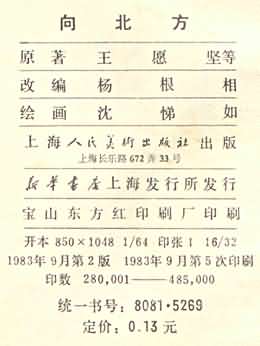 向北方
原著 王愿坚等
改编 杨根相
绘画 沈悌如
上海人民美术出版社出版
上海长乐路672弄33号
新华书店上海发行所发行
宝山东方红印刷厂印刷
开本 850×1048 1/64 印张 1 16/32
1983年9月第2版 1983年9月第5次印刷
印数 280,001——485,000
统一书号：8081·5269
定价：0.13元